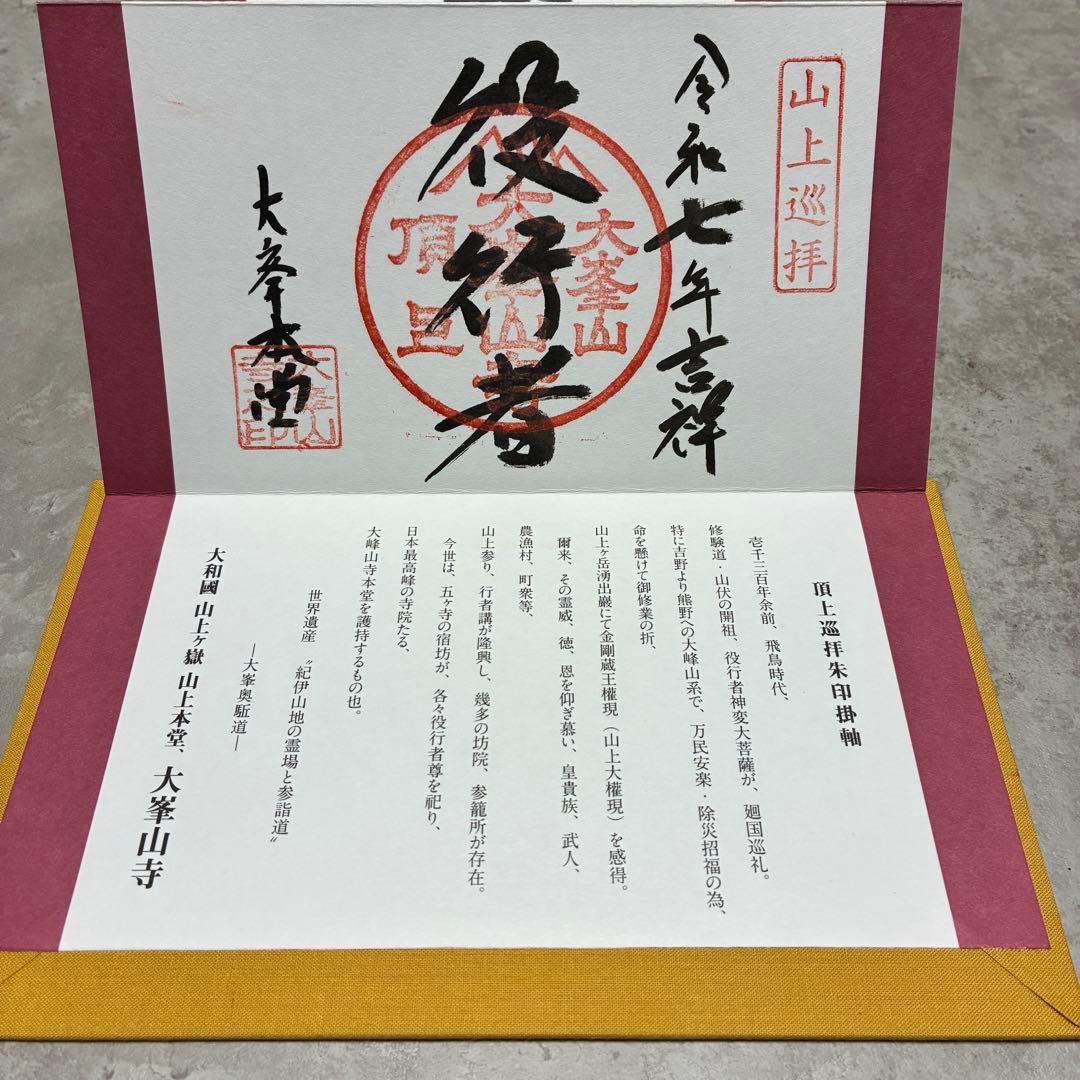 山上巡拝
令和七年吉祥
役行者
大峯山
頂上
大峯本堂
頂上巡拝朱印掛軸
壱千三百年余前、飛鳥時代、
修験道・山伏の開祖、役行者神変大菩薩が、廻国巡礼。
特に吉野より熊野への大峰山系で、万民安楽・除災招福の為、
命を懸けて御修業の折、
山上ヶ岳湧出巖にて金剛蔵王権現（山上大権現）を感得。
爾来、その霊威、徳、恩を仰ぎ慕い、皇貴族、武人、
農漁村、町衆等、
山上参り、行者講が隆興し、幾多の坊院、参籠所が存在。
今世は、五ヶ寺の宿坊が、各々役行者尊を祀り、
日本最高峰の寺院たる、
大峰山寺本堂を護持するもの也。
世界遺産 〝紀伊山地の霊場と参詣道〟
―大峯奥駈道―
大和國 山上ヶ嶽 山上本堂、大峯山寺